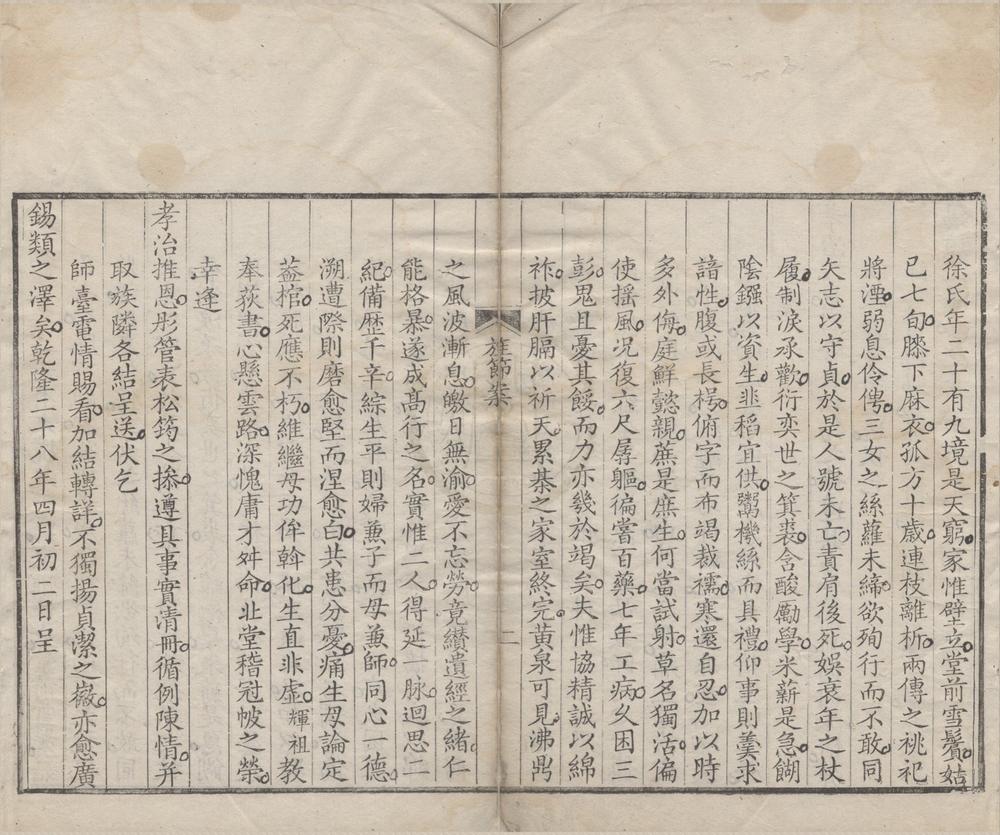 徐氏年二十有九境是天窮家惟壁立堂前雪鬢姑
已七旬膝下麻衣孤方十歲連枝離析兩傳之祧祀
將湮弱息伶俜三女之絲蘿未締欲殉行而不敢同
矢志以守貞於是人號未亡責肩後死娛衰年之杖
履制淚承歡衍奕世之箕裘含酸勵學米薪是急餬
陰鏹以資生韭稻宜供鬻機絲而具禮仰事則羹求
諳性腹或長枵俯字而布竭裁襦寒還自忍加以時
多外侮庭鮮懿親蔗是庶生何當試射草名獨活偏
使搖風况復六尺孱軀徧嘗百藥七年工病夂困三
彭鬼且憂其餒而力亦幾於竭矣夫惟協精誠以綿
祚披肝膈以祈天累棊之家室終完黄泉可見沸鼎
旌節案
二
之風波漸息皦日無渝愛不忘勞竟纘遺經之緒仁
能格暴遂成高行之名實惟二人得延一脉迴思二
紀備歷千辛綜生平則婦兼子而母兼師同心一德
溯遭際則磨愈堅而涅愈白共患分憂痛生母論定
葢棺死應不朽維繼母功侔斡化生直非虛輝祖教
奉荻書心懸雲路深愧庸才舛命北堂稽冠帔之榮
幸逢
孝治推恩彤管表松筠之摻遵具事實清冊循例陳情并
取族隣各結呈送伏乞
師臺電情賜看加結轉詳不獨揚貞潔之徽亦愈廣
錫類之澤矣乾隆二十八年四月初二日呈